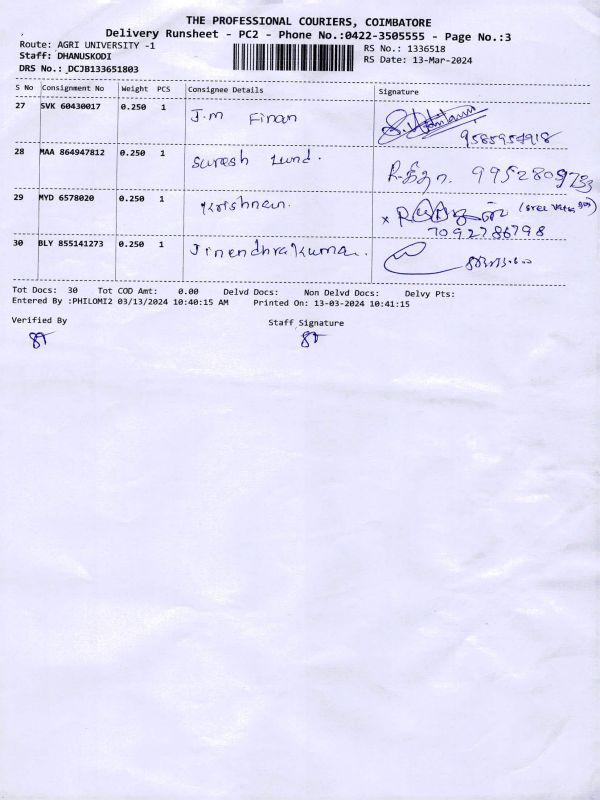 THE PROFESSIONAL COURIERS, COIMBATORE
Delivery Runsheet - PC2 - Phone No.:0422-3505555 - Page No.:3
Route: AGRI UNIVERSITY -1
RS No.: 1336518
Staff: DHANUSKODI
RS Date: 13-Mar-2024
DRS No.: DCJB133651803
S No Consignment No Weight PCS Consignee Details Signature
27 SVK 60430017 0.250 1 J.m Finan
9585954918
28 MAA 864947812 0.250 1 Suresh Lund.
9952809733
29 MYD 6578020 0.250 1 Krishnan.
7092786798
30 BLY 855141273 0.250 1 Jinendhrakumar.
Tot Docs: 30 Tot COD Amt: 0.00 Delvd Docs: Non Delvd Docs: Delvy Pts:
Entered By :PHILOMI2 03/13/2024 10:40:15 AM Printed On: 13-03-2024 10:41:15
Verified By Staff Signature